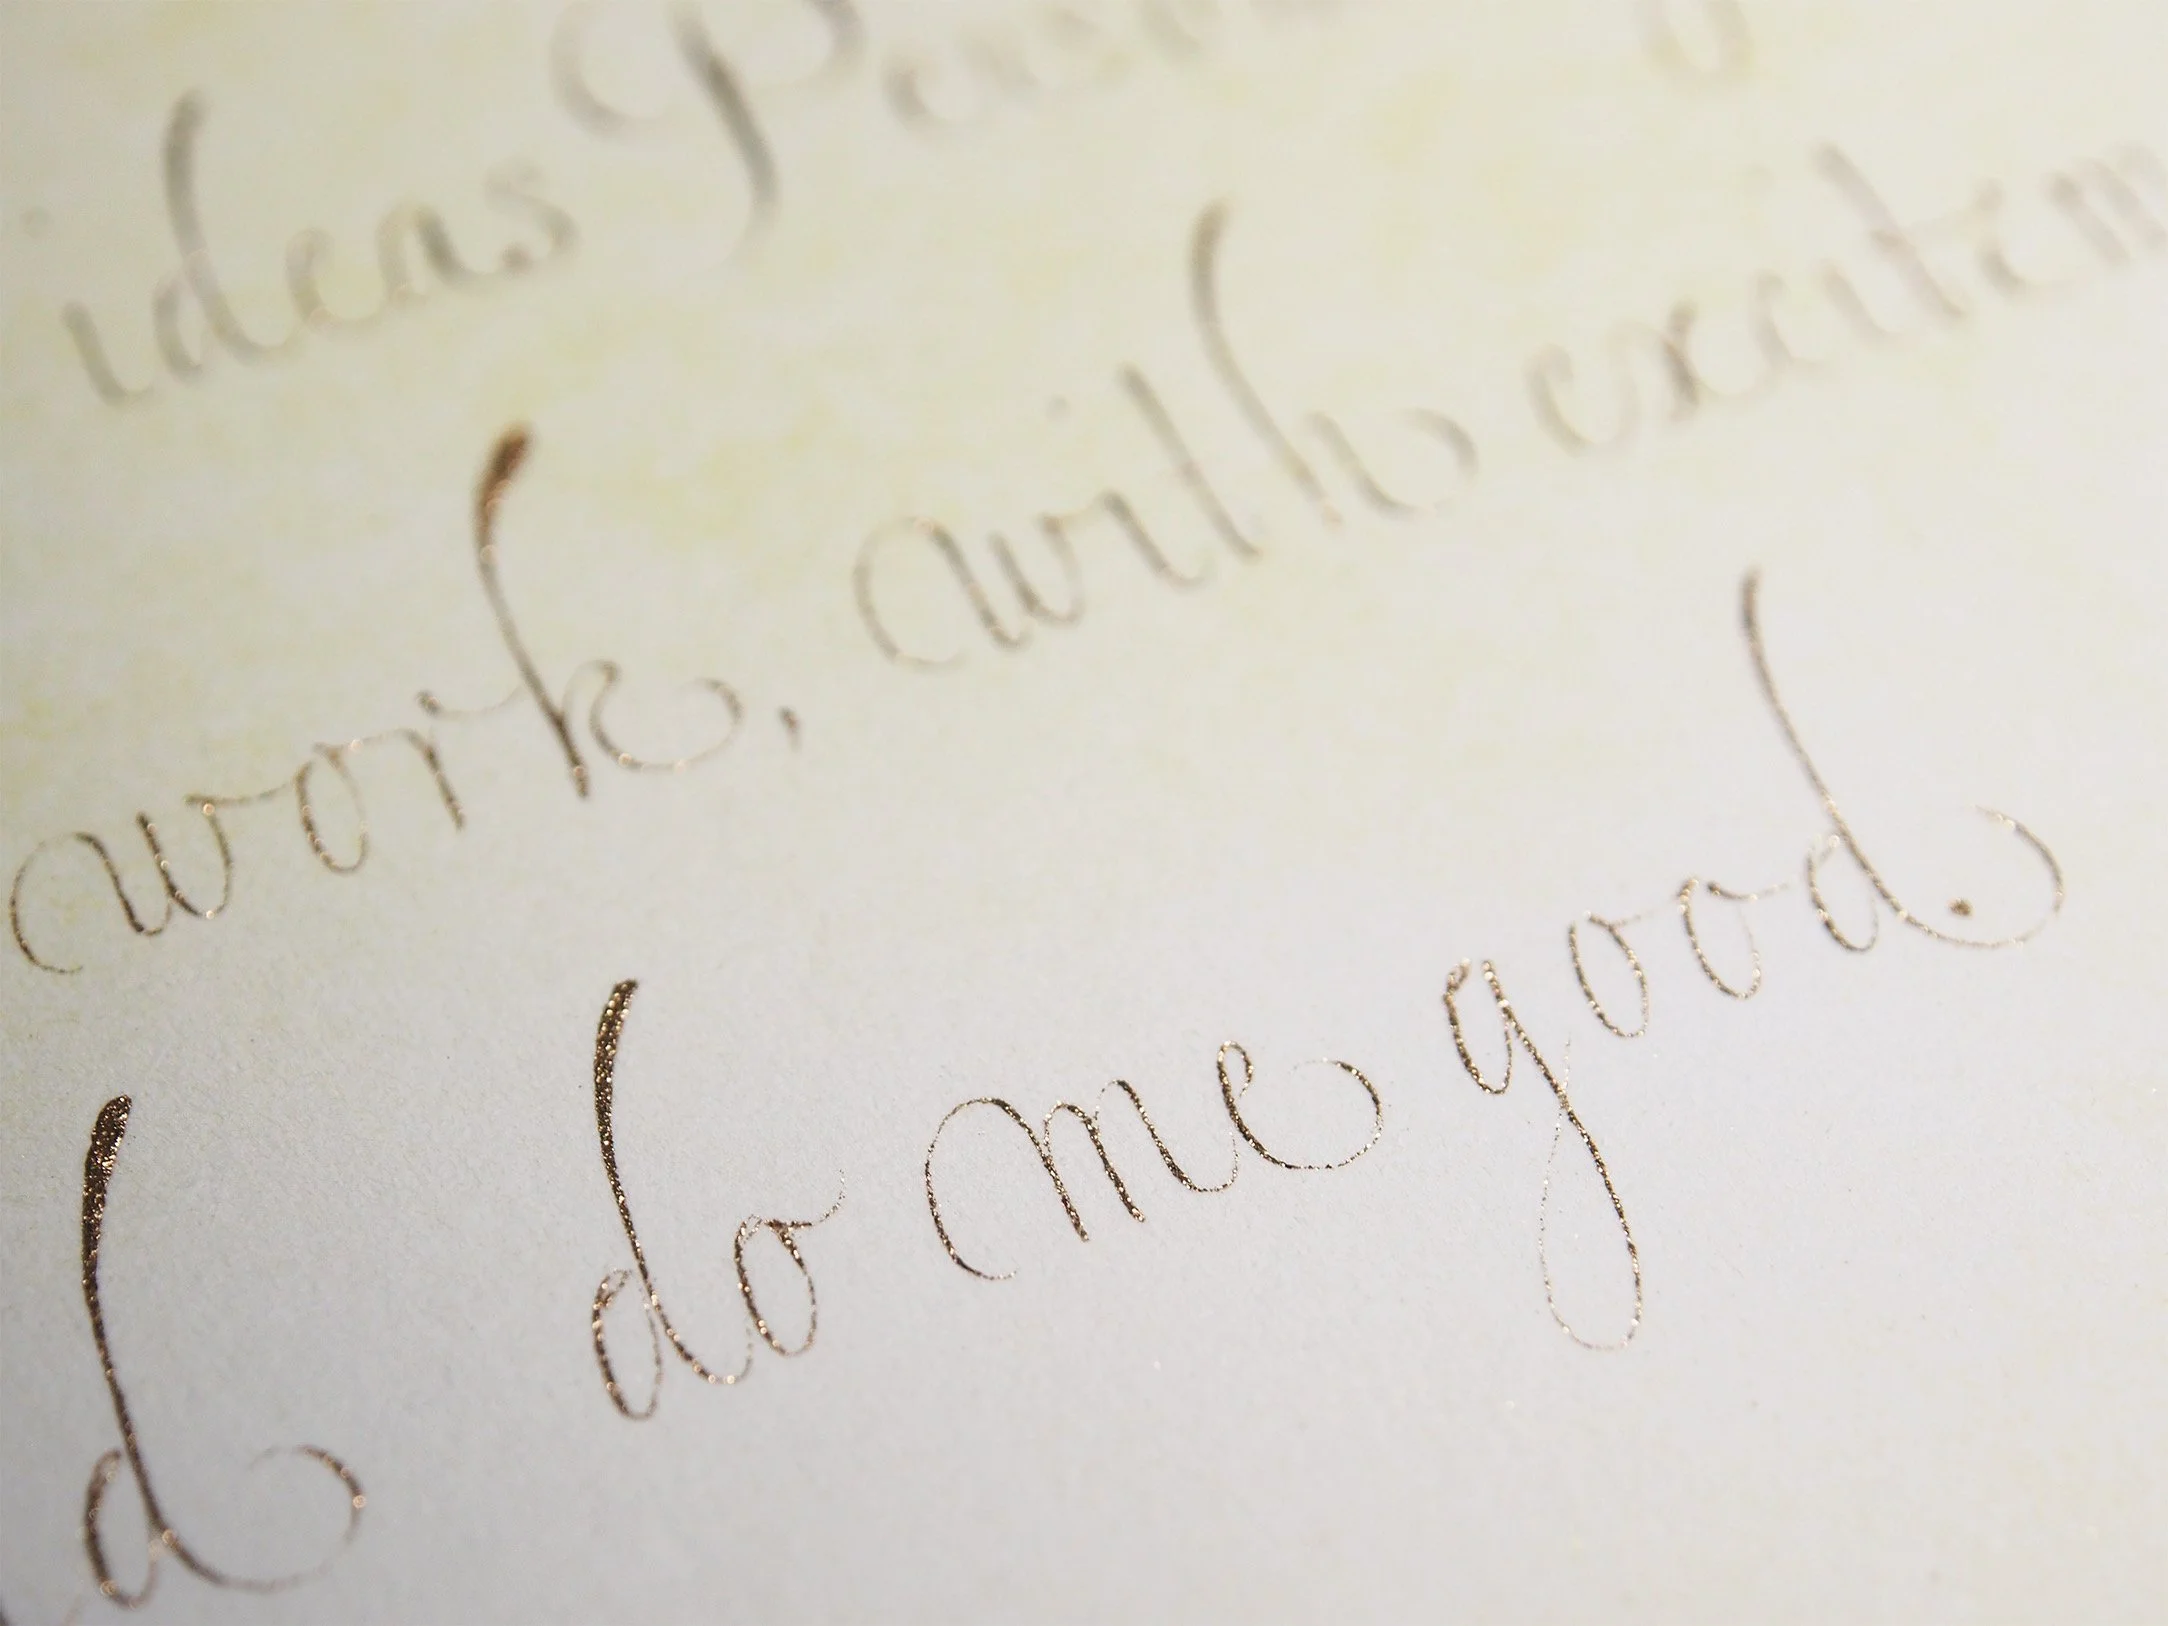 ideas
work, with excitem
d do me good.